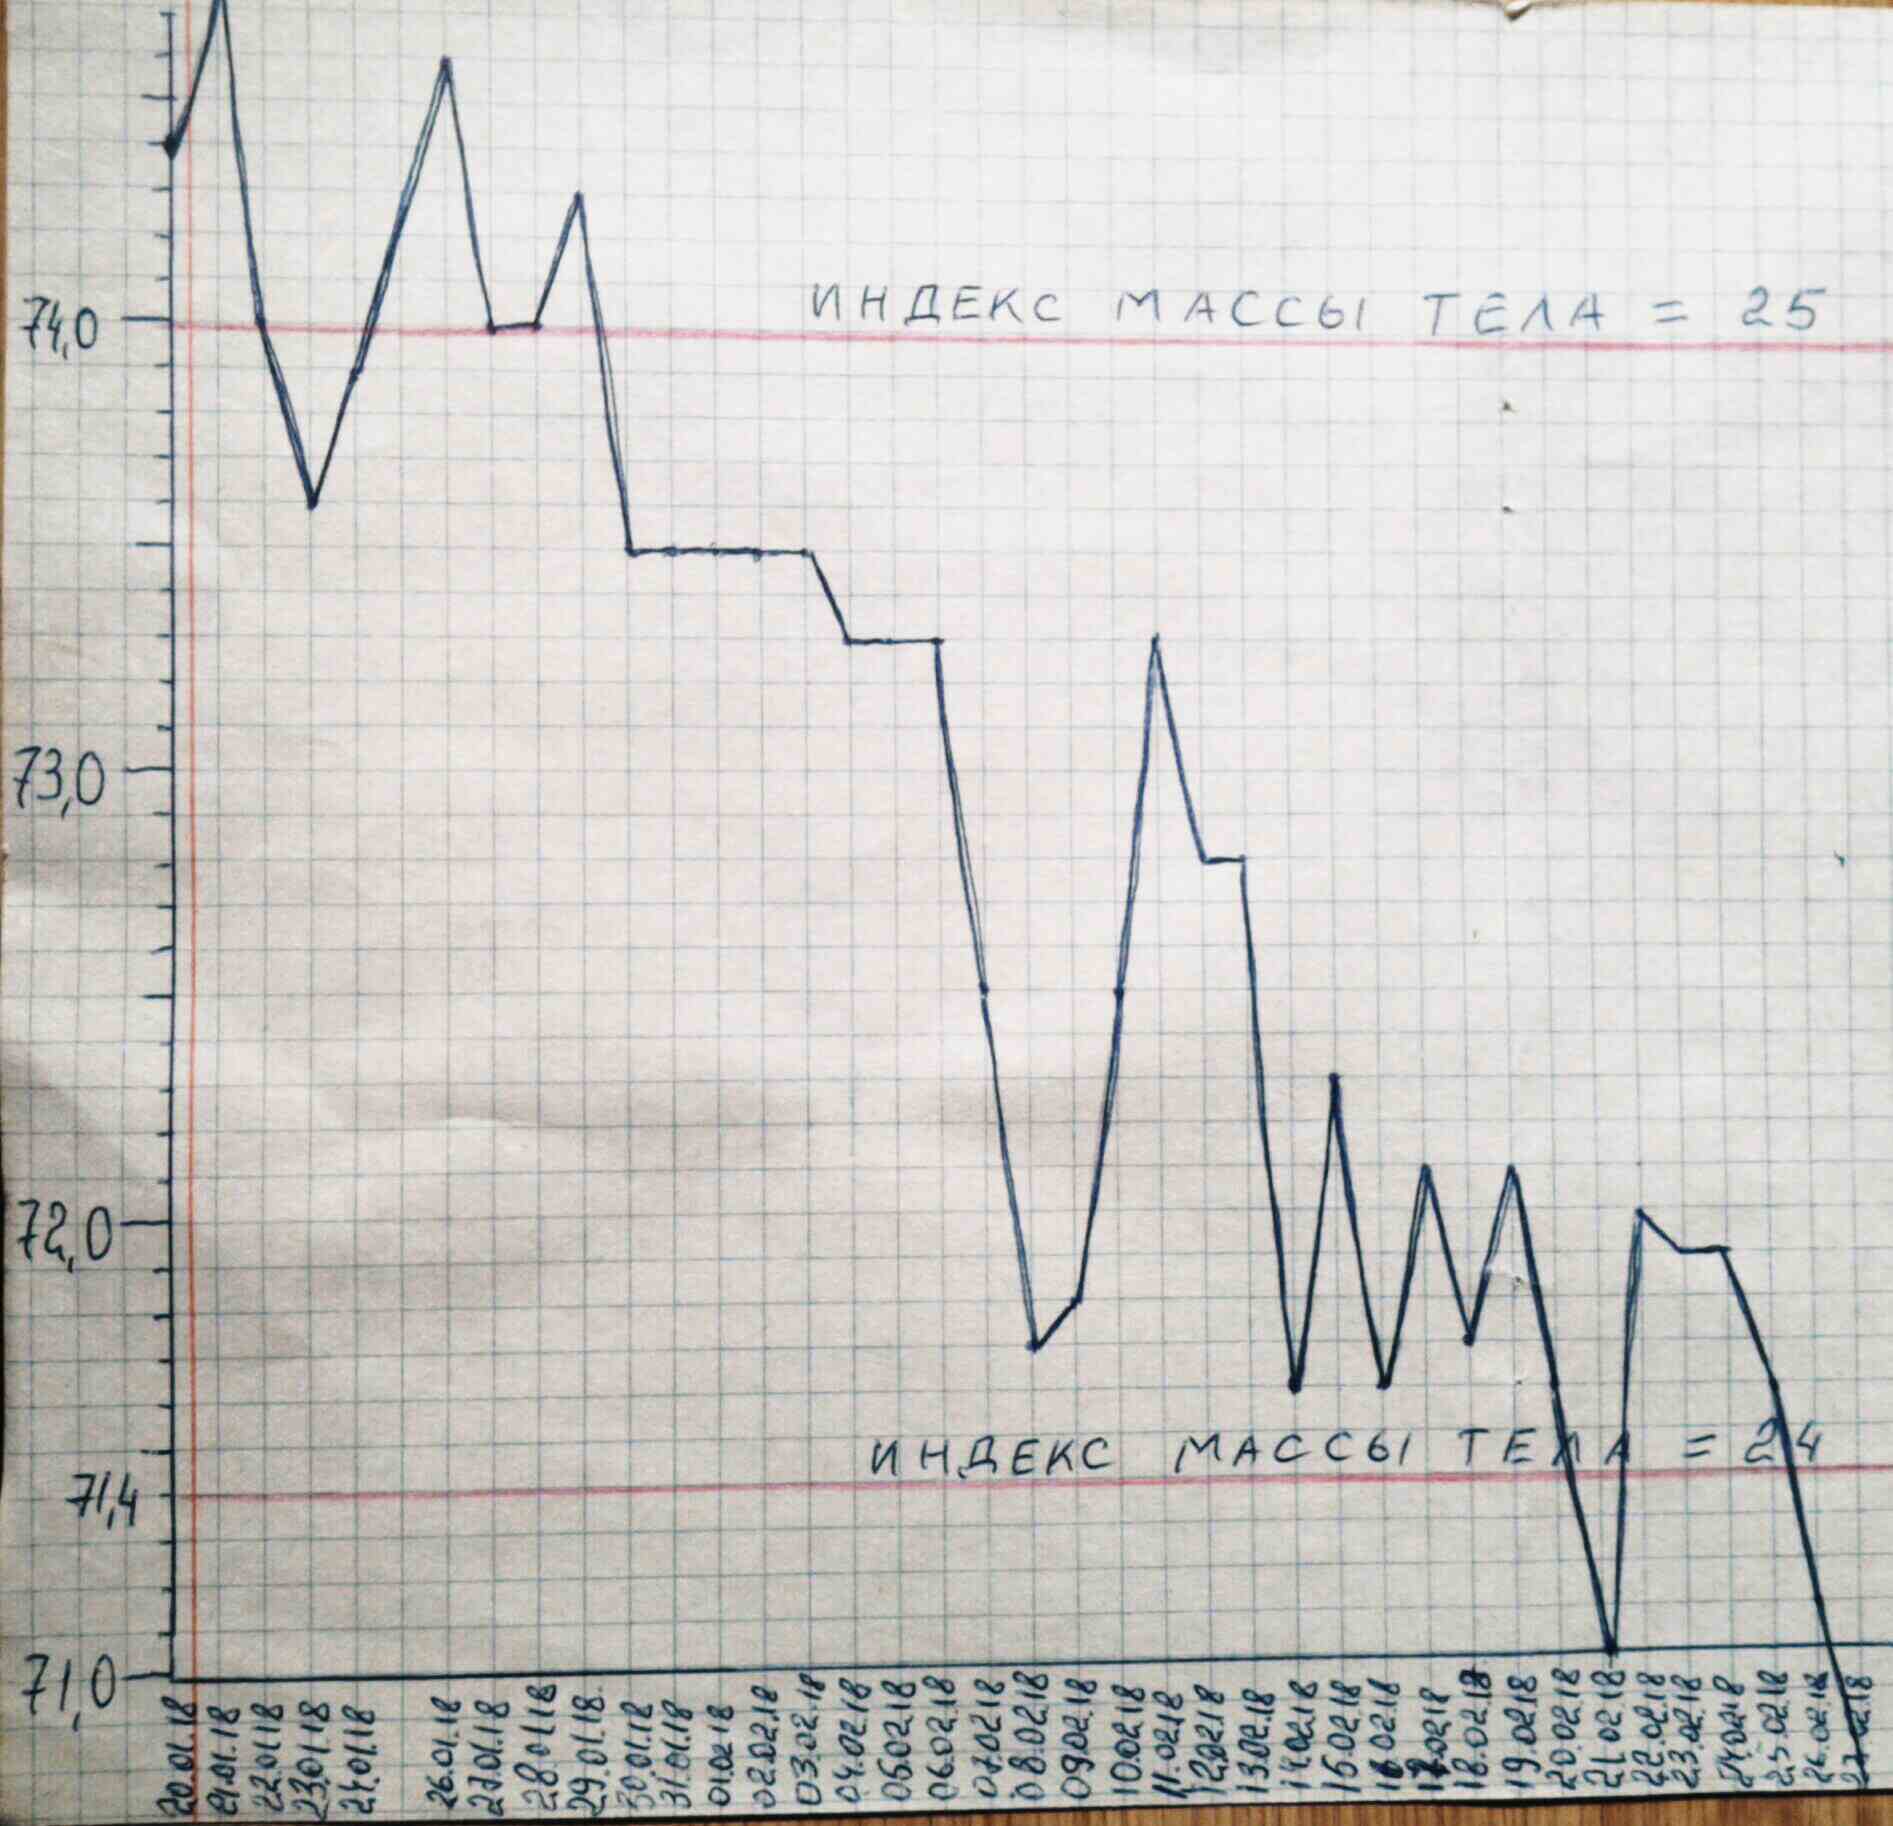 74,0
ИНДЕКС МАССЫ ТЕЛА = 25
73,0
72,0
ИНДЕКС МАССЫ ТЕЛА = 24
71,4
71,0
20.01.18
21.01.18
22.01.18
23.01.18
24.01.18
26.01.18
27.01.18
28.01.18
29.01.18.
30.01.18
31.01.18
01.02.18
02.02.18
03.02.18
04.02.18
05.02.18
06.02.18
07.02.18
08.02.18
09.02.18
10.02.18
11.02.18
12.02.18
13.02.18
14.02.18
15.02.18
16.02.18
17.02.18
18.02.18
19.02.18
20.02.18
21.02.18
22.02.18
23.02.18
24.02.18
25.02.18
26.02.18
27.02.18